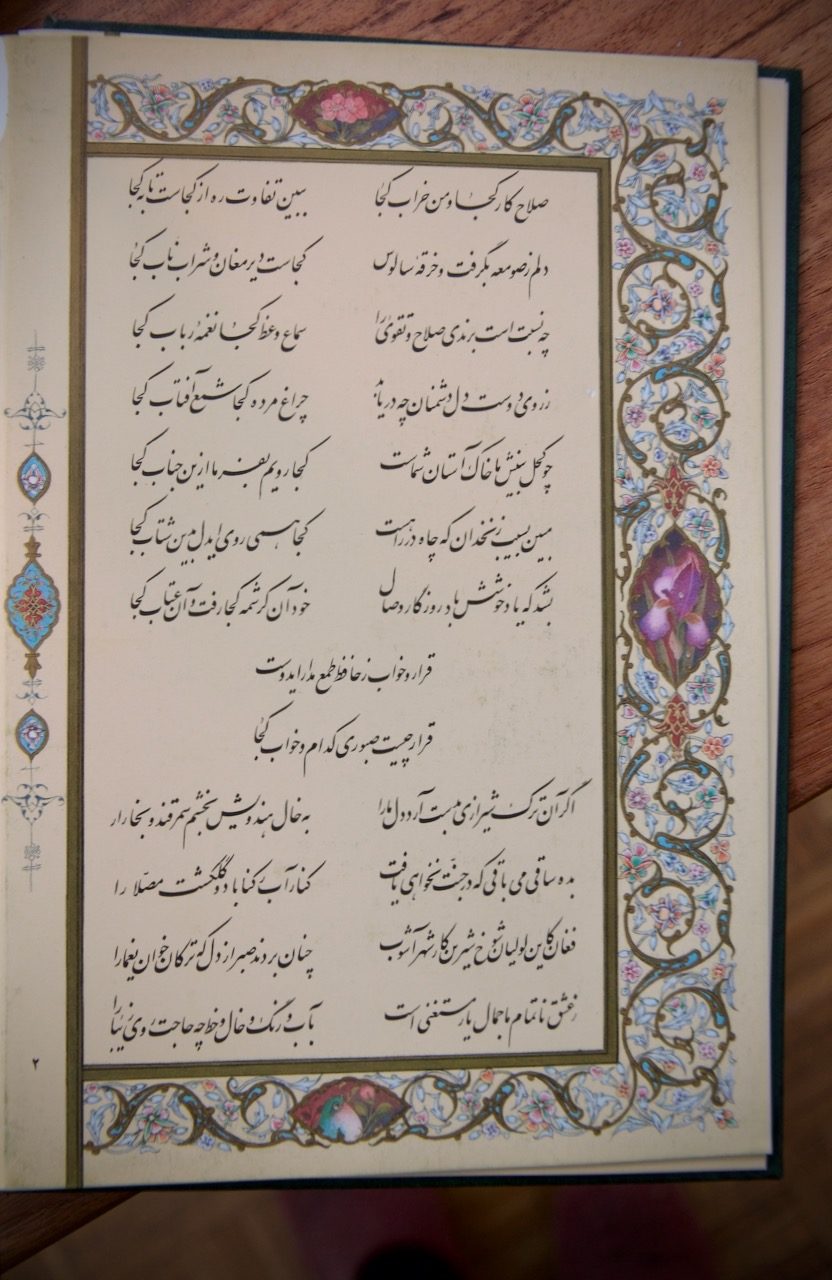 صلاح کار کجا و من خراب کجا ببین تفاوت ره از کجاست تا به کجا
دلم ز صومعه بگرفت و خرقهٔ سالوس کجاست دیر مغان و شراب ناب کجا
چه نسبت است برندی صلاح و تقوی را سماع وعظ کجا نغمهٔ رباب کجا
ز روی دوست دل دشمنان چه دریابد چراغ مرده کجا شمع آفتاب کجا
چو کحل بینش ما خاک آستان شماست کجا رویم بفرما ازین جناب کجا
مبین بسیب زنخدان که چاه در راهست کجا همی روی ایدل بدین شتاب کجا
بشد که یاد خوشش باد روزگار وصال خود آن کرشمه کجا رفت و آن عتاب کجا
قرار و خواب ز حافظ طمع مدار ایدوست
قرار چیست صبوری کدام و خواب کجا
اگر آن ترک شیرازی بدست آرد دل ما را به خال هندویش بخشم سمرقند و بخارا را
بده ساقی می باقی که در جنّت نخواهی یافت کنار آب رکناباد و گلگشت مصلّا را
فغان کاین لولیان شوخ شیرین کار شهر آشوب چنان بردند صبر از دل که ترکان خوان یغما را
ز عشق ناتمام ما جمال یار مستغنی است بآب و رنگ و خال و خط چه حاجت روی زیبا را
۲